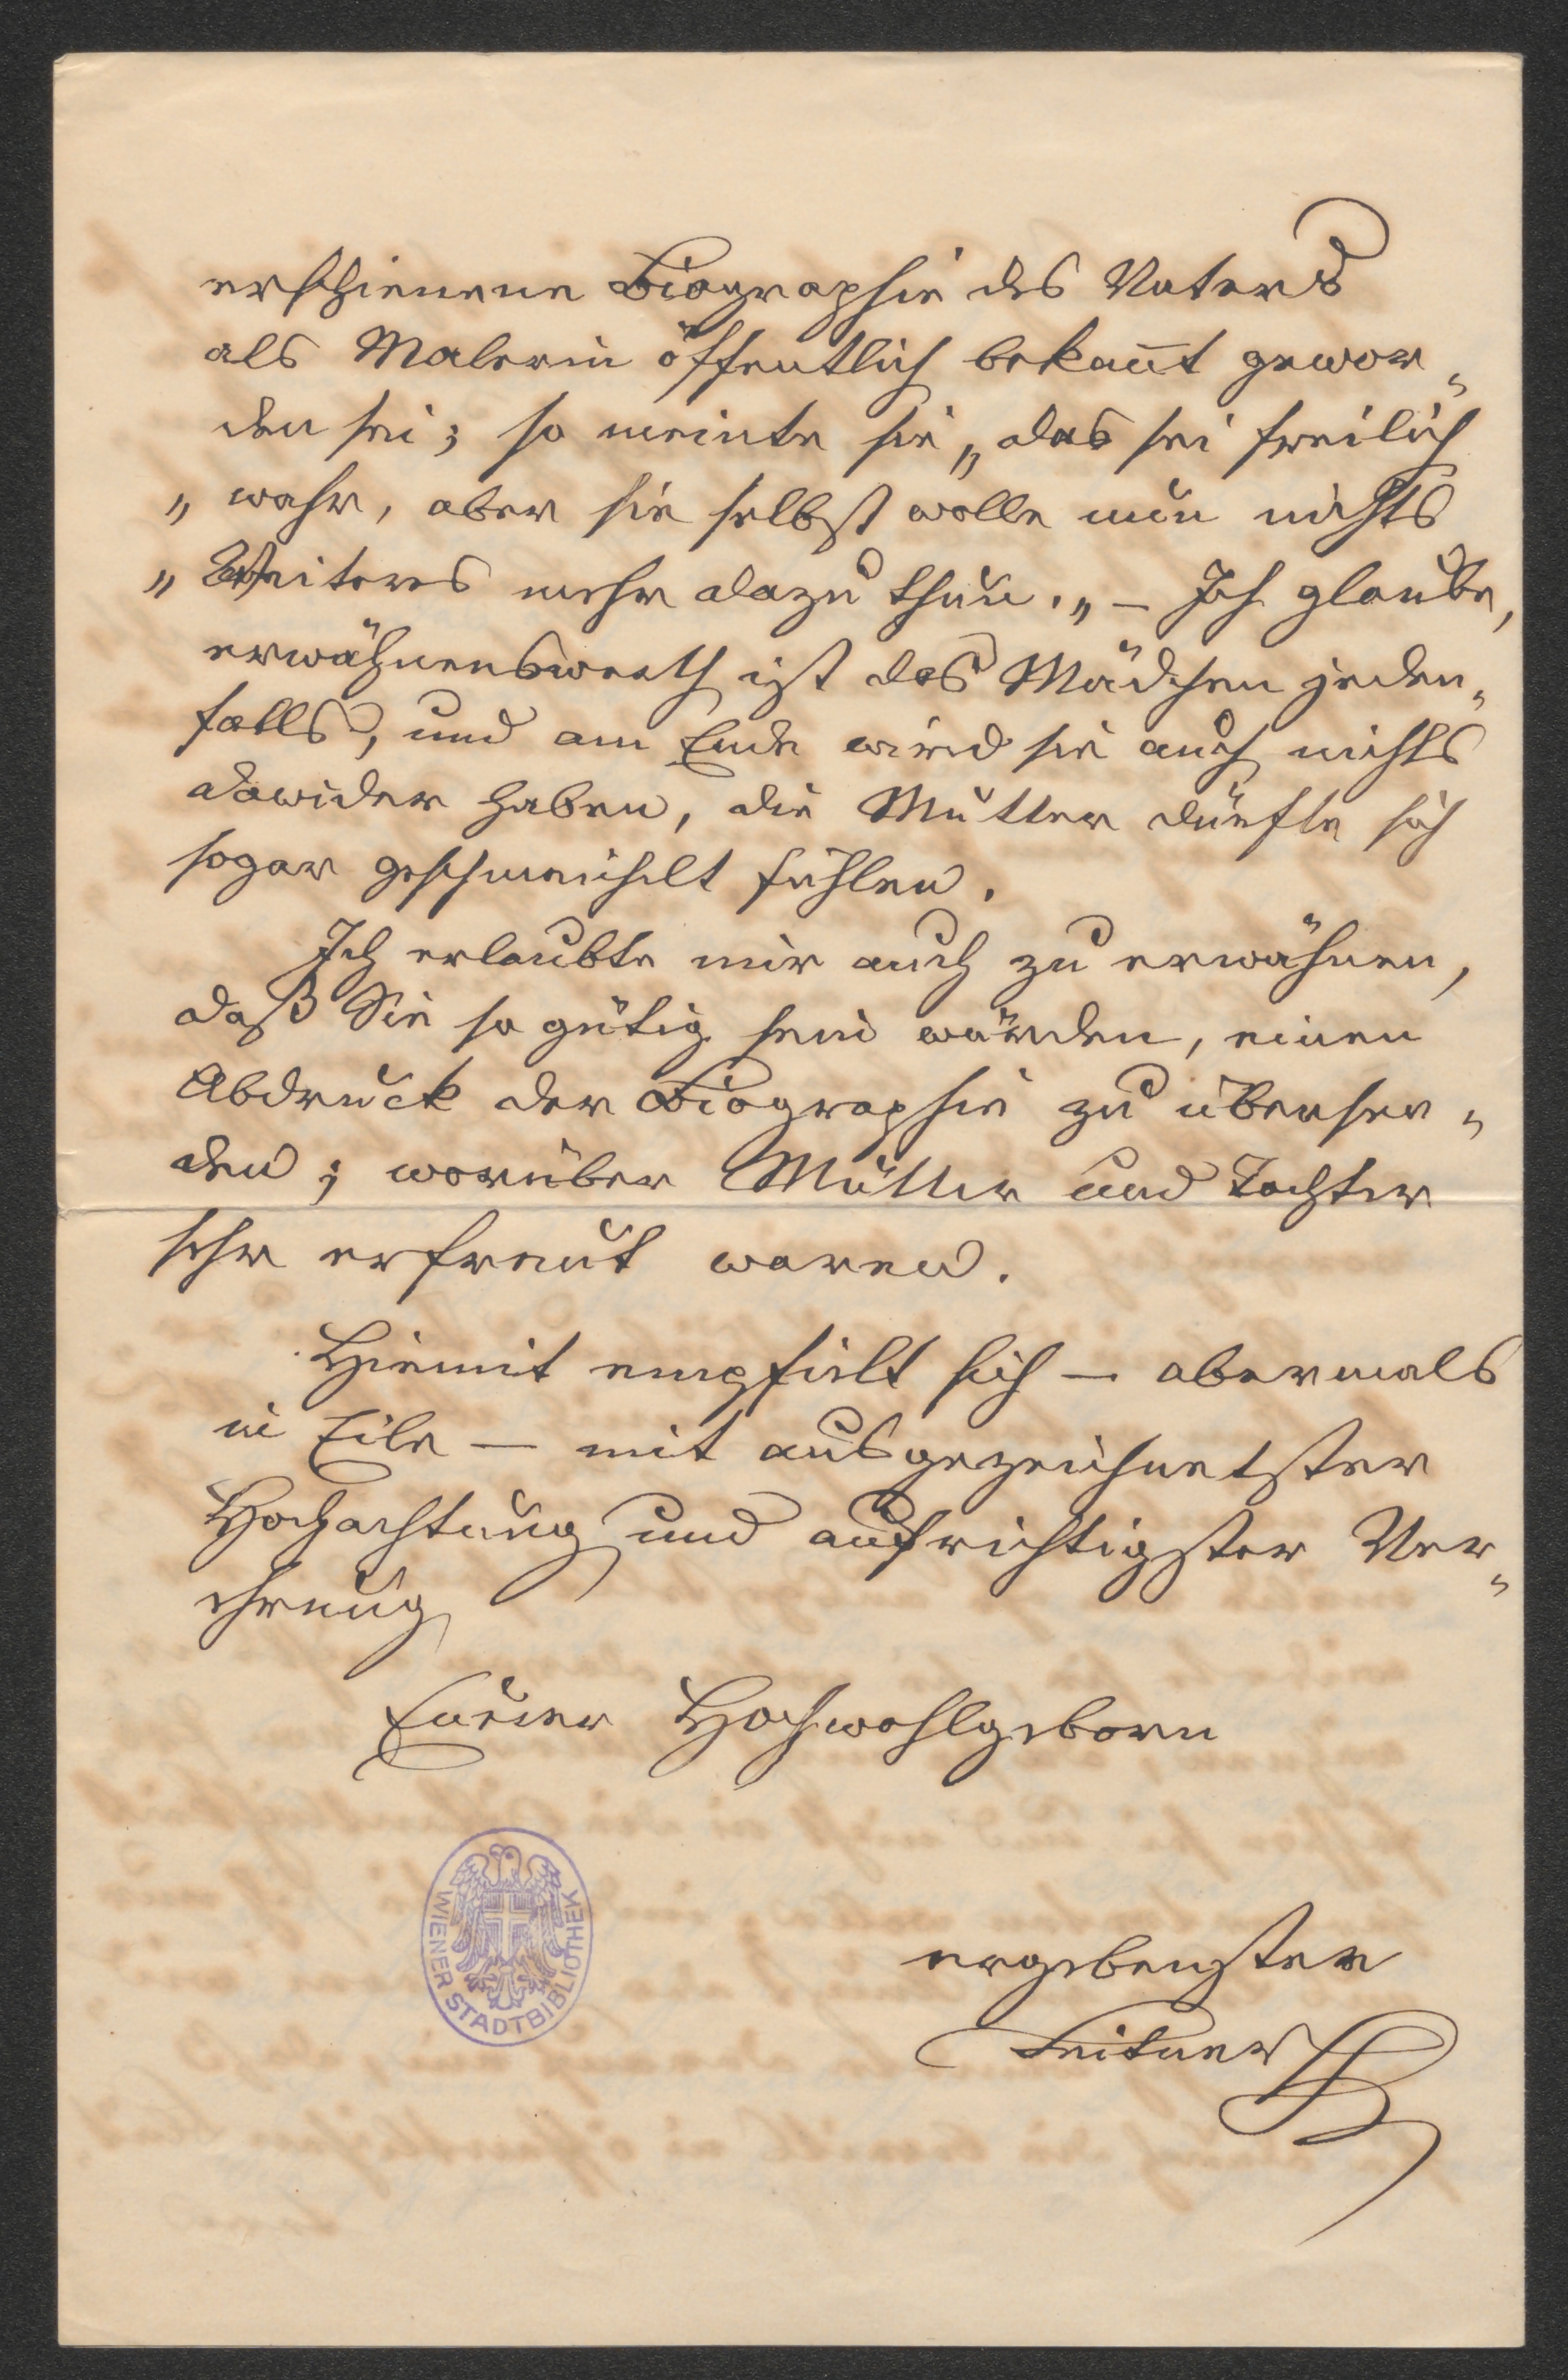 erschienene Biographie des Vaters
als Malerin öffentlich bekannt gewor„
den sei; so meinte sie „das sei freilich
„wahr, aber sie selbst wolle nun nichts
„Weiteres mehr dazu thun.„ – Ich glaube,
erwähnenswerth ist das Mädchen jeden„
falls, und am Ende wird sie auch nichts
dawider haben, die Mutter dürfte sich
sogar geschmeichelt fühlen.
Ich erlaubte mir auch zu erwähnen,
daß Sie so gütig sein würden, einen
Abdruck der Biographie zu übersen„
den; worüber Mutter und Tochter
sehr erfreut waren.
Hiemit empfielt sich – abermals
in Eile – mit ausgezeichnetster
Hochachtung und aufrichtigster Ver„
ehrung
Eurer Hochwohlgeborn
WIENER STADTBIBLIOTHEK
ergebenster
Leitner